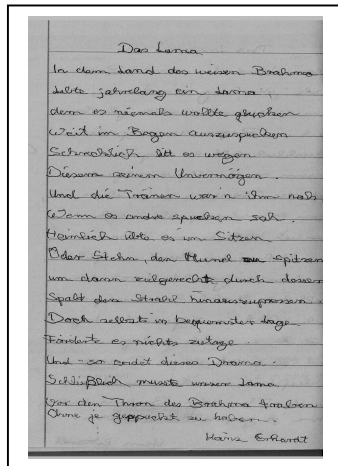 Das Lama
In dem Land des weisen Brahma
Lebte jahrelang ein Lama,
dem es niemals wollte glucken
Weit im Bogen auszuspucken
Schrecklich litt es wegen
Diesem seinem Unvermögen.
Und die Tränen war'n ihm nah
Wenn es andre spucken sah.
Heimlich übte es im Sitzen
Oder Stehn, den Mund zu spitzen
um dann zielgerecht durch dessen
Spalt den Strahl hinauszupressen.
Doch selbst in bequemster Lage
Förderte es nichts zutage.
Und - so endet dieses Drama -
Schließlich musste unser Lama
Vor den Thron des Brahma traben
Ohne je gespuckt zu haben.
Heinz Erhardt